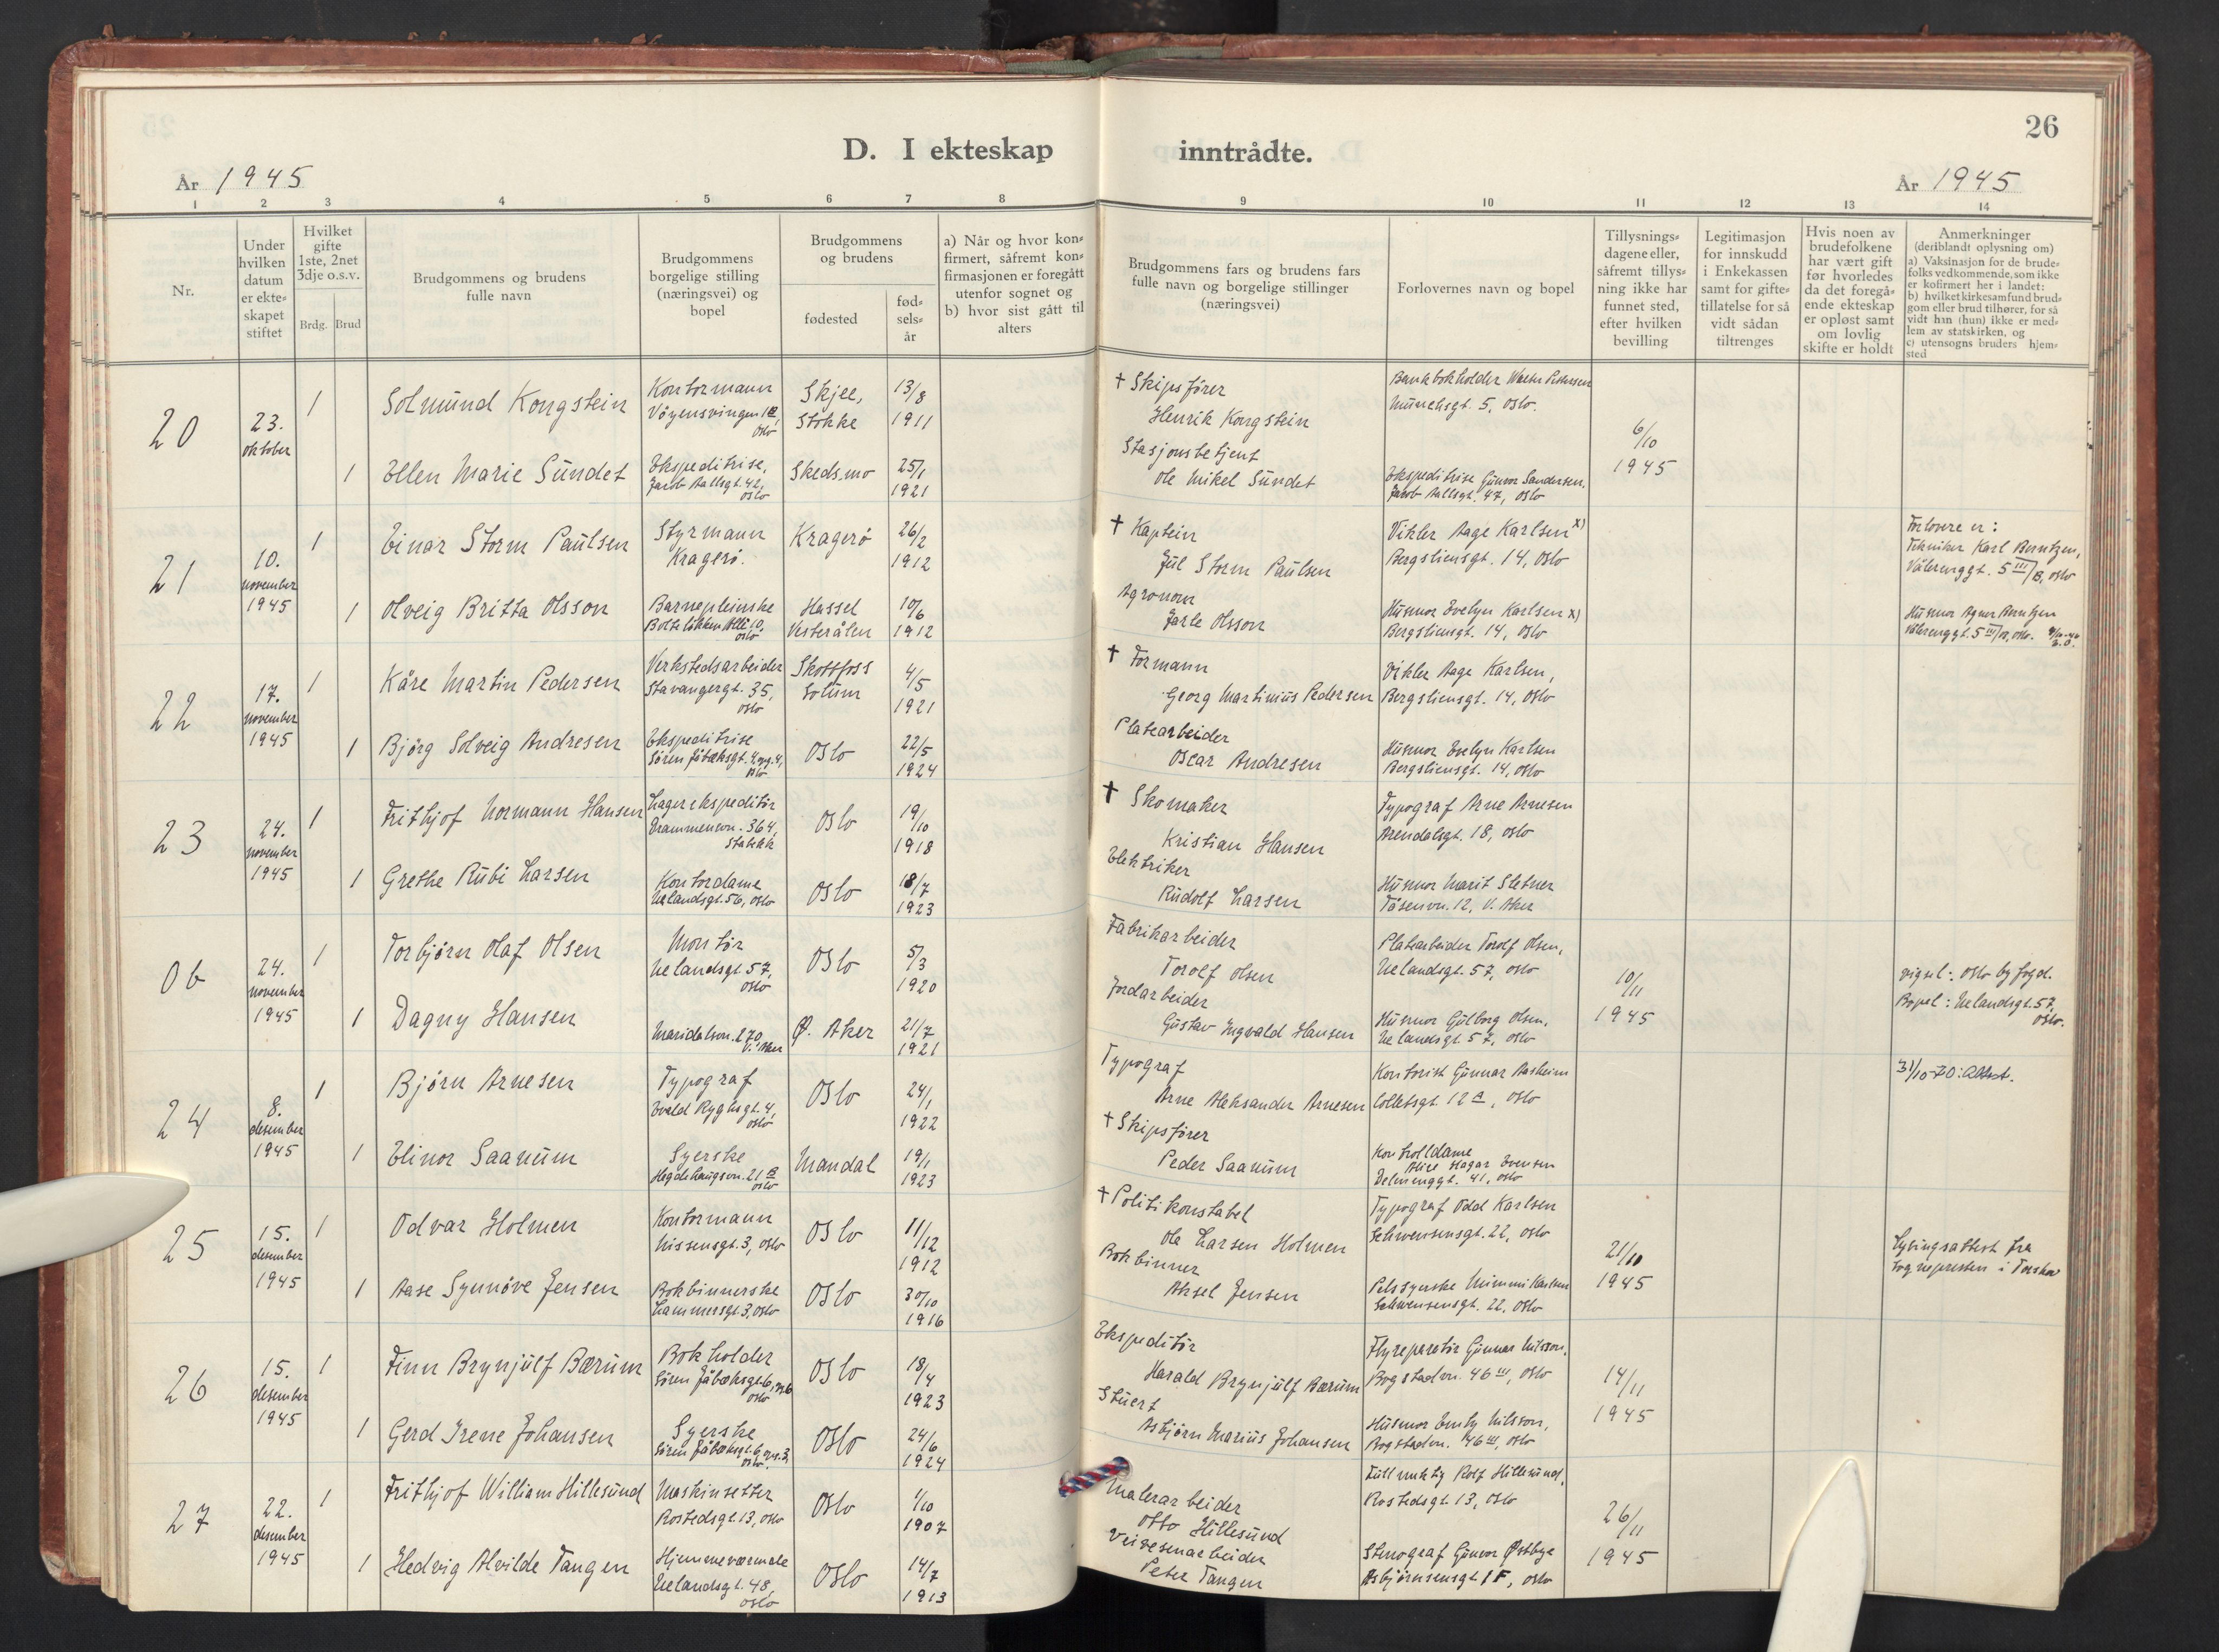 26
D. I ekteskap inntrådte.
År 1945
År 1945
1 2 3 4 5 6 7 8 9 10 11 12 13 14
Nr.
Under hvilken datum er ekte-skapet stiftet
Hvilket gifte 1ste, 2net 3dje o.s.v.
Brdg. Brud
Brudgommens og brudens fulle navn
Brudgommens borgelige stilling (næringsvei) og bopel
Brudgommens og brudens
fødested
fød-sels-år
a) Når og hvor kon-firmert, såfremt kon-firmasjonen er foregått utenfor sognet og
b) hvor sist gått til alters
Brudgommens fars og brudens fars fulle navn og borgelige stillinger (næringsvei)
Forlovernes navn og bopel
Tillysnings-dagene eller, såfremt tillys-ning ikke har funnet sted, efter hvilken bevilling
Legitimasjon for innskudd i Enkekassen samt for gifte-tillatelse for så vidt sådan tiltrenges
Hvis noen av brudefolkene har vært gift før hvorledes da det foregå-ende ekteskap er opløst samt om lovlig skifte er holdt
Anmerkninger
(deriblandt oplysning om)
a) Vaksinasjon for de brude-folks vedkommende, som ikke er kofirmert her i landet:
b) hvilket kirkesamfund brud-gom eller brud tilhører, for så vidt han (hun) ikke er med-lem av statskirken, og
c) utensogns bruders hjem-sted
20
23. oktober
1 Solmund Kongstein
Kontormann
Vøyensvingen Oslo
Skjee, Stokke
13/8 1911
† Skipsfører
Henrik Kongstein
Bankbokholder Pedersen
Munchsgt. 5, Oslo.
6/10 1945
1 Ellen Marie Sundet
Ekspeditrise,
Jacob Aallsgt. 42, Oslo
Skedsmo
25/1 1921
Stasjonsbetjent
Ole Mikel Sundet
Ekspeditrise Gunvor Sandersen,
Jacob Aallsgt. 47, Oslo
21
10. november 1945
1 Einar Storm Paulsen
Styrmann
Kragerø.
Kragerø
26/2 1912
† Kaptein
Jul Storm Paulsen
Vikler Aage Karlsen x)
Bergsliensgt. 14, Oslo
Forlovere er:
Tekniker Karl Berntzen,
Vålerenggt. 5 III/B, Oslo
1 Olveig Britta Olsson
Barnepleierske
Bolteløkken Allé 10, Oslo
Hassel Vesterålen
10/6 1912
Agronom
Jarle Olsson
Husmor Evelyn Karlsen x)
Bergsliensgt. 14, Oslo
Husmor Berntzen
Vålerenggt. 5 III/B, Oslo.
22
17. november 1945
1 Kåre Martin Pedersen
Verkstedsarbeider
Stavangergt. 35, Oslo
Skotfoss Solum
4/5 1921
† Formann
Georg Martinius Pedersen
Vikler Aage Karlsen,
Bergsliensgt. 14, Oslo
1 Bjørg Solveig Andresen
Ekspeditrise
Søren Jåbæksgt. 4, opg. 4, Oslo
Oslo
22/5 1924
Platearbeider
Oscar Andresen
Husmor Evelyn Karlsen
Bergsliensgt. 14, Oslo
23
24. november 1945
1 Frithjof Normann Hansen
Lagerekspeditør
Drammensvn. 364, Stabekk
Oslo
19/10 1918
† Skomaker
Kristian Hansen
Typograf Arne Arnesen
Arendalsgt. 18, Oslo
1 Grethe Rubi Larsen
Kontordame
Uelandsgt. 56, Oslo
Oslo
18/7 1923
Elektriker
Rudolf Larsen
Husmor Marit Sletner
Tåsenvn. 12, V. Aker
Ob
24. november 1945
1 Torbjørn Olaf Olsen
Montør
Uelandsgt. 57, Oslo
Oslo
5/3 1920
Fabrikarbeider
Torolf Olsen
Platearbeider Torolf Olsen,
Uelandsgt. 57, Oslo
10/11 1945
vigsel: Oslo byfogd.
Bopel: Uelandsgt. 57, Oslo.
1 Dagny Hansen
Maridalsvn. 270, V. Aker
Ø. Aker
21/7 1921
Jordarbeider
Gustav Ingvald Hansen
Husmor Gulborg Olsen,
Uelandsgt. 57, Oslo
24
8. desember 1945
1 Bjørn Arnesen
Typograf
Evald Ryghsgt. 4, Oslo
Oslo
24/1 1922
Typograf
Arne Aleksander Arnesen
Kontorist Gunnar Aasheim
Colletsgt. 12 a, Oslo
31/10-70: Attest.
1 Elinor Saanum
Syerske
Hegdehaugsvn. 21 Oslo
Mandal
19/1 1923
† Skipsfører
Peder Saanum
Kontrolldame
Alice Hagar Evensen
Delenenggt. 41, Oslo
25
15. desember 1945
1 Odvar Holmen
Kontormann
Nissensgt. 3, Oslo
Oslo
11/12 1912
† Politikonstabel
Ole Larsen Holmen
Typograf Odd Karlsen
Schwensensgt. 22, Oslo
21/10 1945
Lysingsattest fra
sognepresten i Torshov
1 Aase Synnøve Jensen
Bokbinnerske
Lammersgt. 3, Oslo
Oslo
30/10 1916
Bokbinner
Aksel Jensen
Pelssyerske Mimmi Karlsen
Schwensensgt. 22, Oslo
26
15. desember 1945
1 Finn Brynjulf Bærum
Bokholder
Søren Jåbæksgt. 6, Oslo
Oslo
18/4 1923
Ekspeditør
Harald Brynjulf Bærum
Flyreparatør Gunnar Nilsson,
Bogstadvn. 46 III, Oslo
14/11 1945
1 Gerd Irene Johansen
Syerske
Søren Jåbæksgt. 6, Oslo.
Oslo
24/6 1924
Stuert
Asbjørn Marius Johansen
Husmor Emly Nilsson,
Bogstadvn. 46 III, Oslo
27
22. desember 1945
1 Frithjof William Hillesund
Maskinsetter
Rostedsgt. 13, Oslo
Oslo
1/10 1907
Malerarbeider
Otto Hillesund
Fullmektig Rolf Hillesund,
Rostedsgt. 13, Oslo
26/11 1945
1 Hedvig Alvilde Tangen
Hjemmeværende
Uelandsgt. 48, Oslo
Oslo
14/7 1913
Veivesenarbeider
Peter Tangen
Stenograf Gunvor Østbye
Asbjørnsensgt 1 F, Oslo